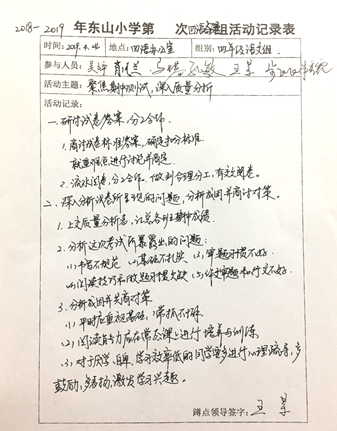 2018-2019 年东山小学第 次四语备课组活动记录表
时间:2019.4. 地点:四语办公室 组别:四年级语文组
参与人员:
活动主题:聚焦期中测试,深入质量分析
活动记录:
一、研讨试卷答案,分工合作。
1.商讨试卷标准答案,确定扣分标准
就重难点进行讨论并商定。
2.流水阅卷,分工合作。做到合理分工,有效阅卷。
二、深入分析试卷所呈现的问题,分析成因并商讨对策。
1.上交质量分析表,汇总各班期中成绩。
2.分析这次考试所暴露出的问题:
(1)书写不规范 (2)基础不扎实 (3)审题习惯不好
(4)阅读技巧和做题习惯欠缺 (5)作文审题和行文不好。
3.分析成因并共商对策
(1)平时应重视基础,常抓不懈
(2)阅读能力应在常态课上进行培养与训练
(3)对于厌学、自卑、学习效率低的同学要多进行心理疏导,多
鼓励,多表扬,激发学习兴趣。
蹲点领导签字: